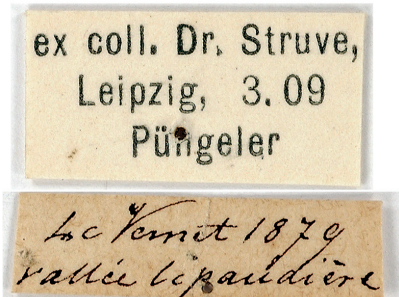 ex coll. Dr. Struve,
Leipzig, 3.09
Püngeler
Le Vernet 1879
vallée lipaudière